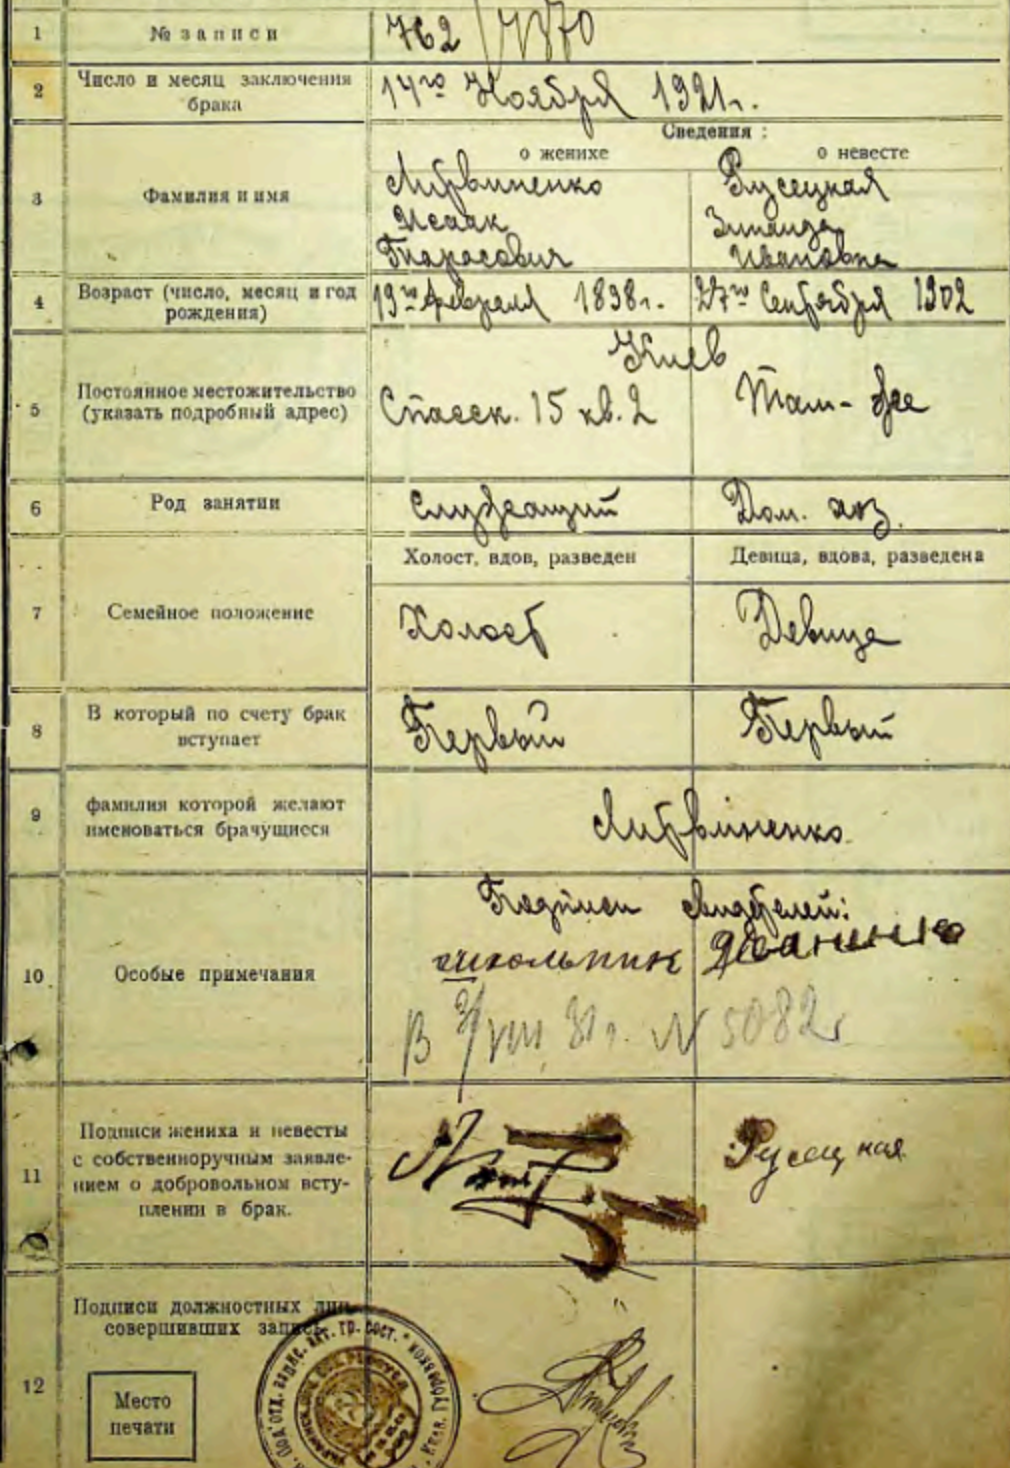 1 № записи 762/7370
2 Число и месяц заключения брака 14го Ноября 1921г.
Сведения:
о женихе о невесте
3 Фамилия и имя
Литвиненко Русецкая
Исаак Зинаида
Тарасович Ивановна
4 Возраст (число, месяц и год рождения) 19го февраля 1898г. 27го Сентября 1902
Киев
5 Постоянное местожительство (указать подробный адрес) Спасск. 15 кв. 2 Там-же
6 Род занятии Служащий Дом. хоз.
Холост, вдов, разведен Девица, вдова, разведена
7 Семейное положение Холост Девица
8 В который по счету брак вступает Первый Первый
9 фамилия которой желают именоваться брачущиеся Литвиненко
Подписи свидетелей:
школьник
10 Особые примечания
В VIII 31 г. N 5082
11 Подписи жениха и невесты
с собственноручным заявле-
нием о добровольном всту-
плении в брак.
Русецкая
Подписи должностных лиц
совершивших запись
12
Место
печати